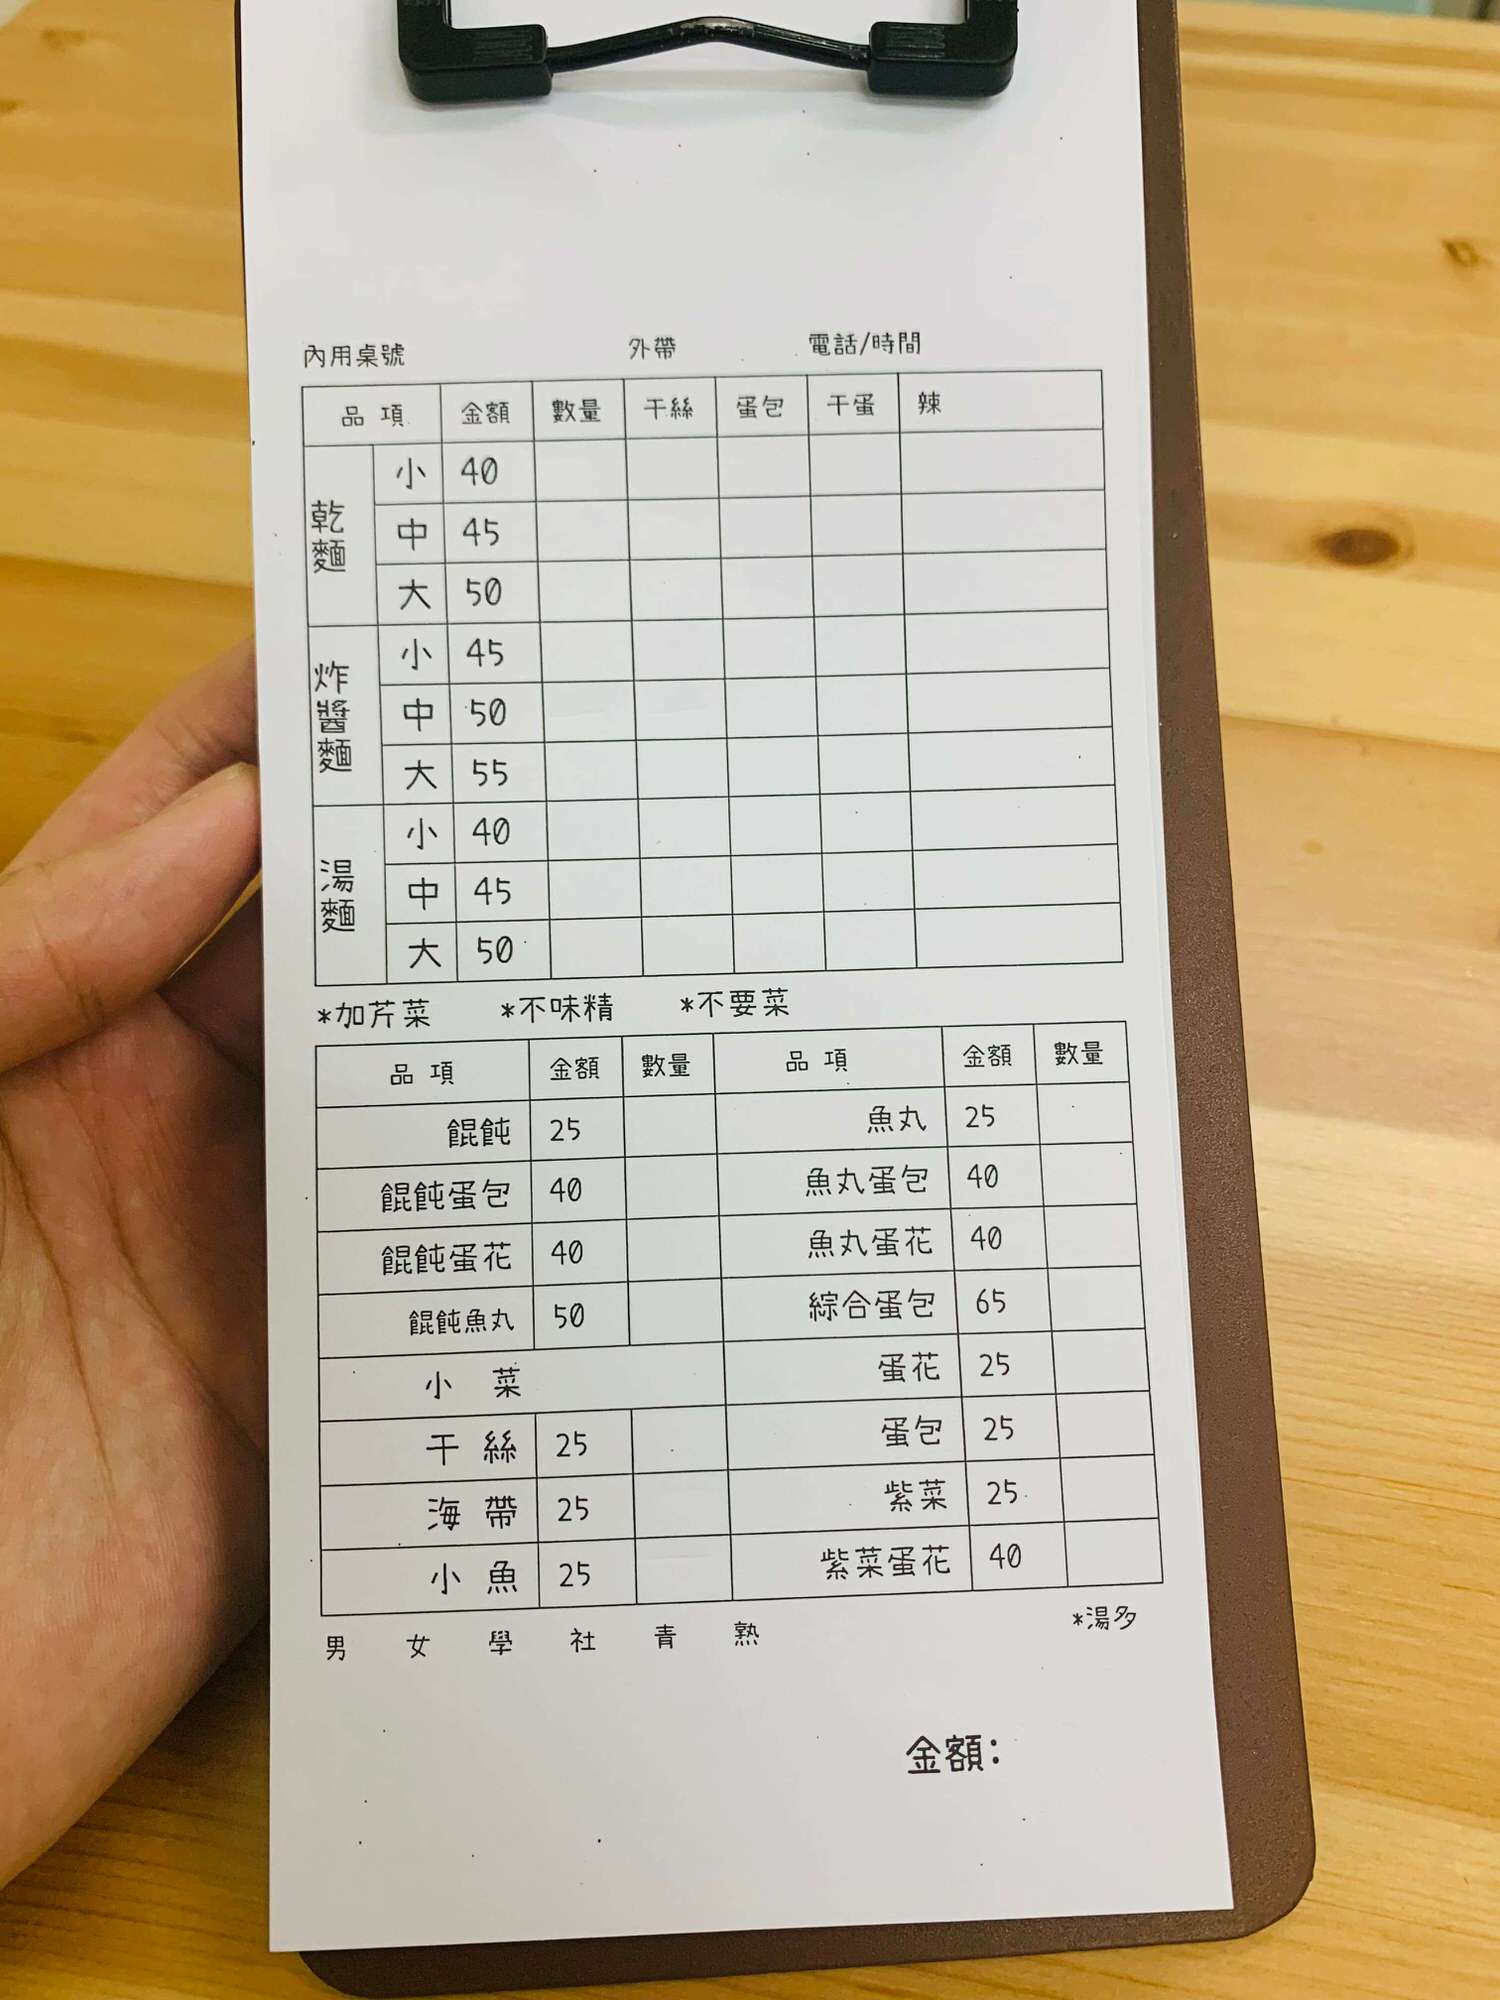 內用桌號 外帶 電話/時間
品項 金額 數量 干絲 蛋包 干蛋 辣
乾麵 小 40
中 45
大 50
炸醬麵 小 45
中 50
大 55
湯麵 小 40
中 45
大 50
*加芹菜 *不味精 *不要菜
品項 金額 數量 品項 金額 數量
餛飩 25 魚丸 25
餛飩蛋包 40 魚丸蛋包 40
餛飩蛋花 40 魚丸蛋花 40
餛飩魚丸 50 綜合蛋包 65
小菜 蛋花 25
干絲 25 蛋包 25
海帶 25 紫菜 25
小魚 25 紫菜蛋花 40
男 女 學 社 青 熟 *湯多
金額: